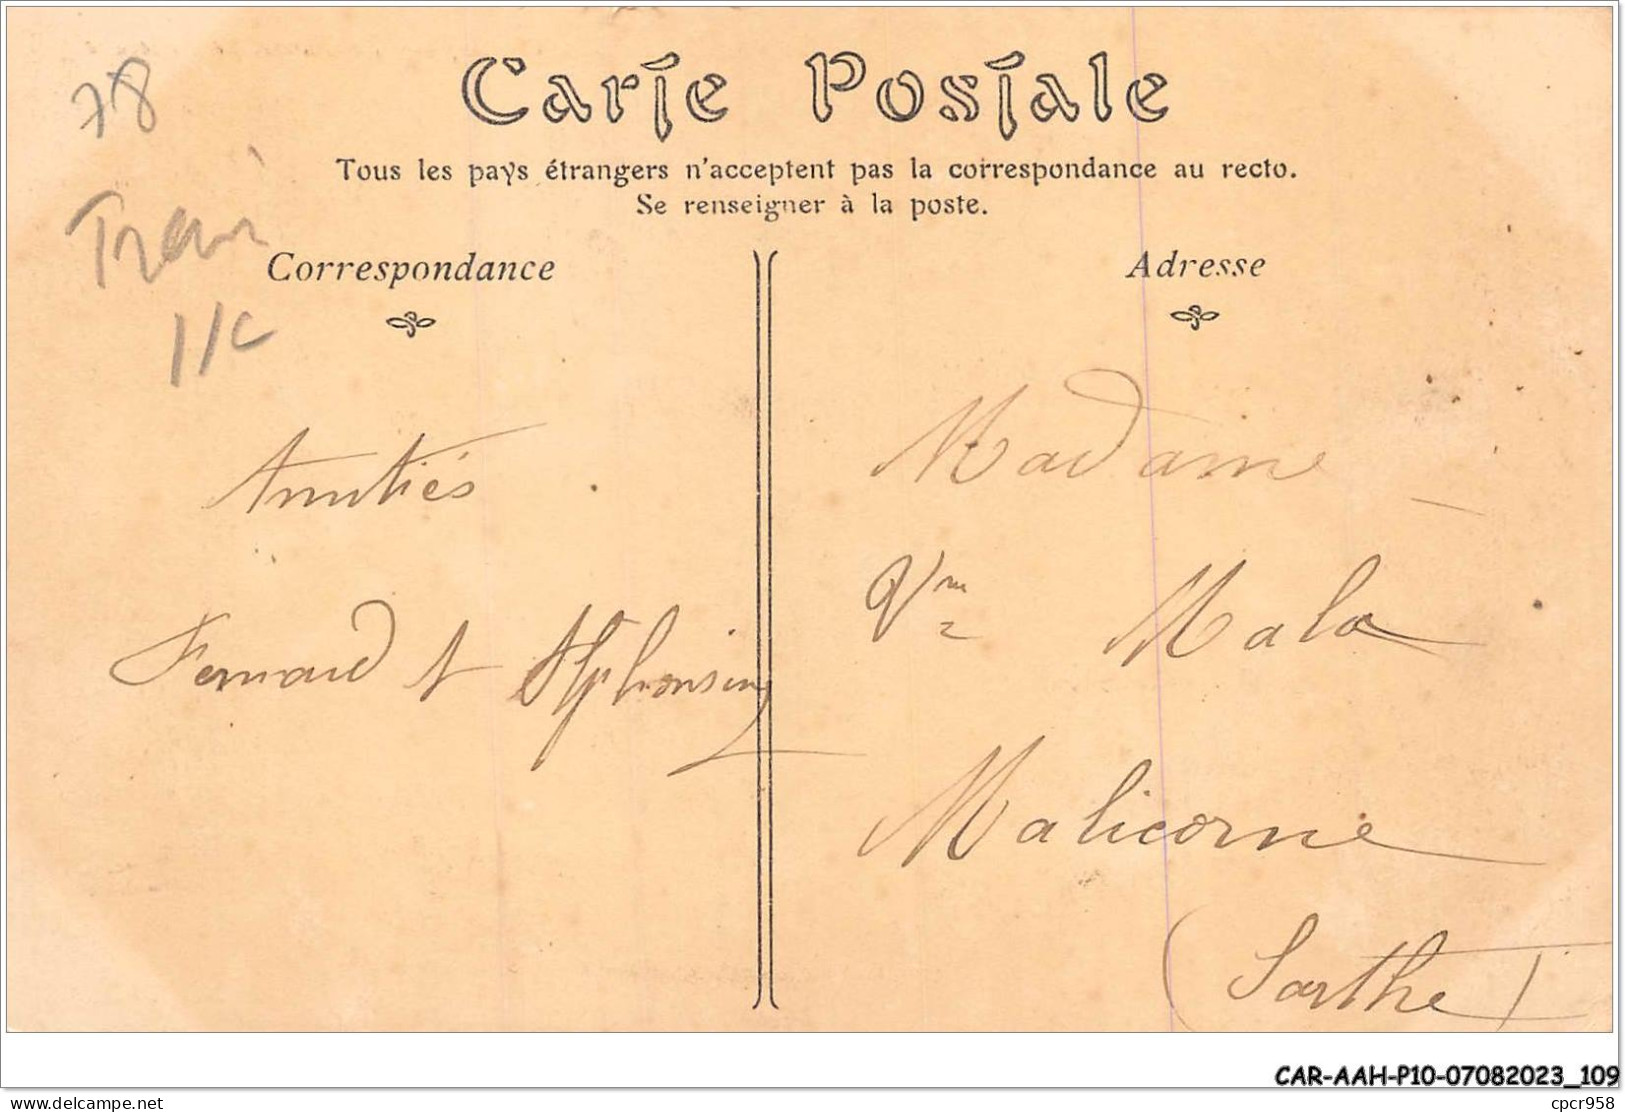 Carte Postale
Tous les pays étrangers n'acceptent pas la correspondance au recto.
Se renseigner à la poste.
78
Train
11C
Correspondance
Adresse
Amitiés
Fernand et Alphonsine
Madame
Vve Mala
Malicorne
(Sarthe)
CAR-AAH-P10-07082023_109
www.delcampe.net
cpcr958